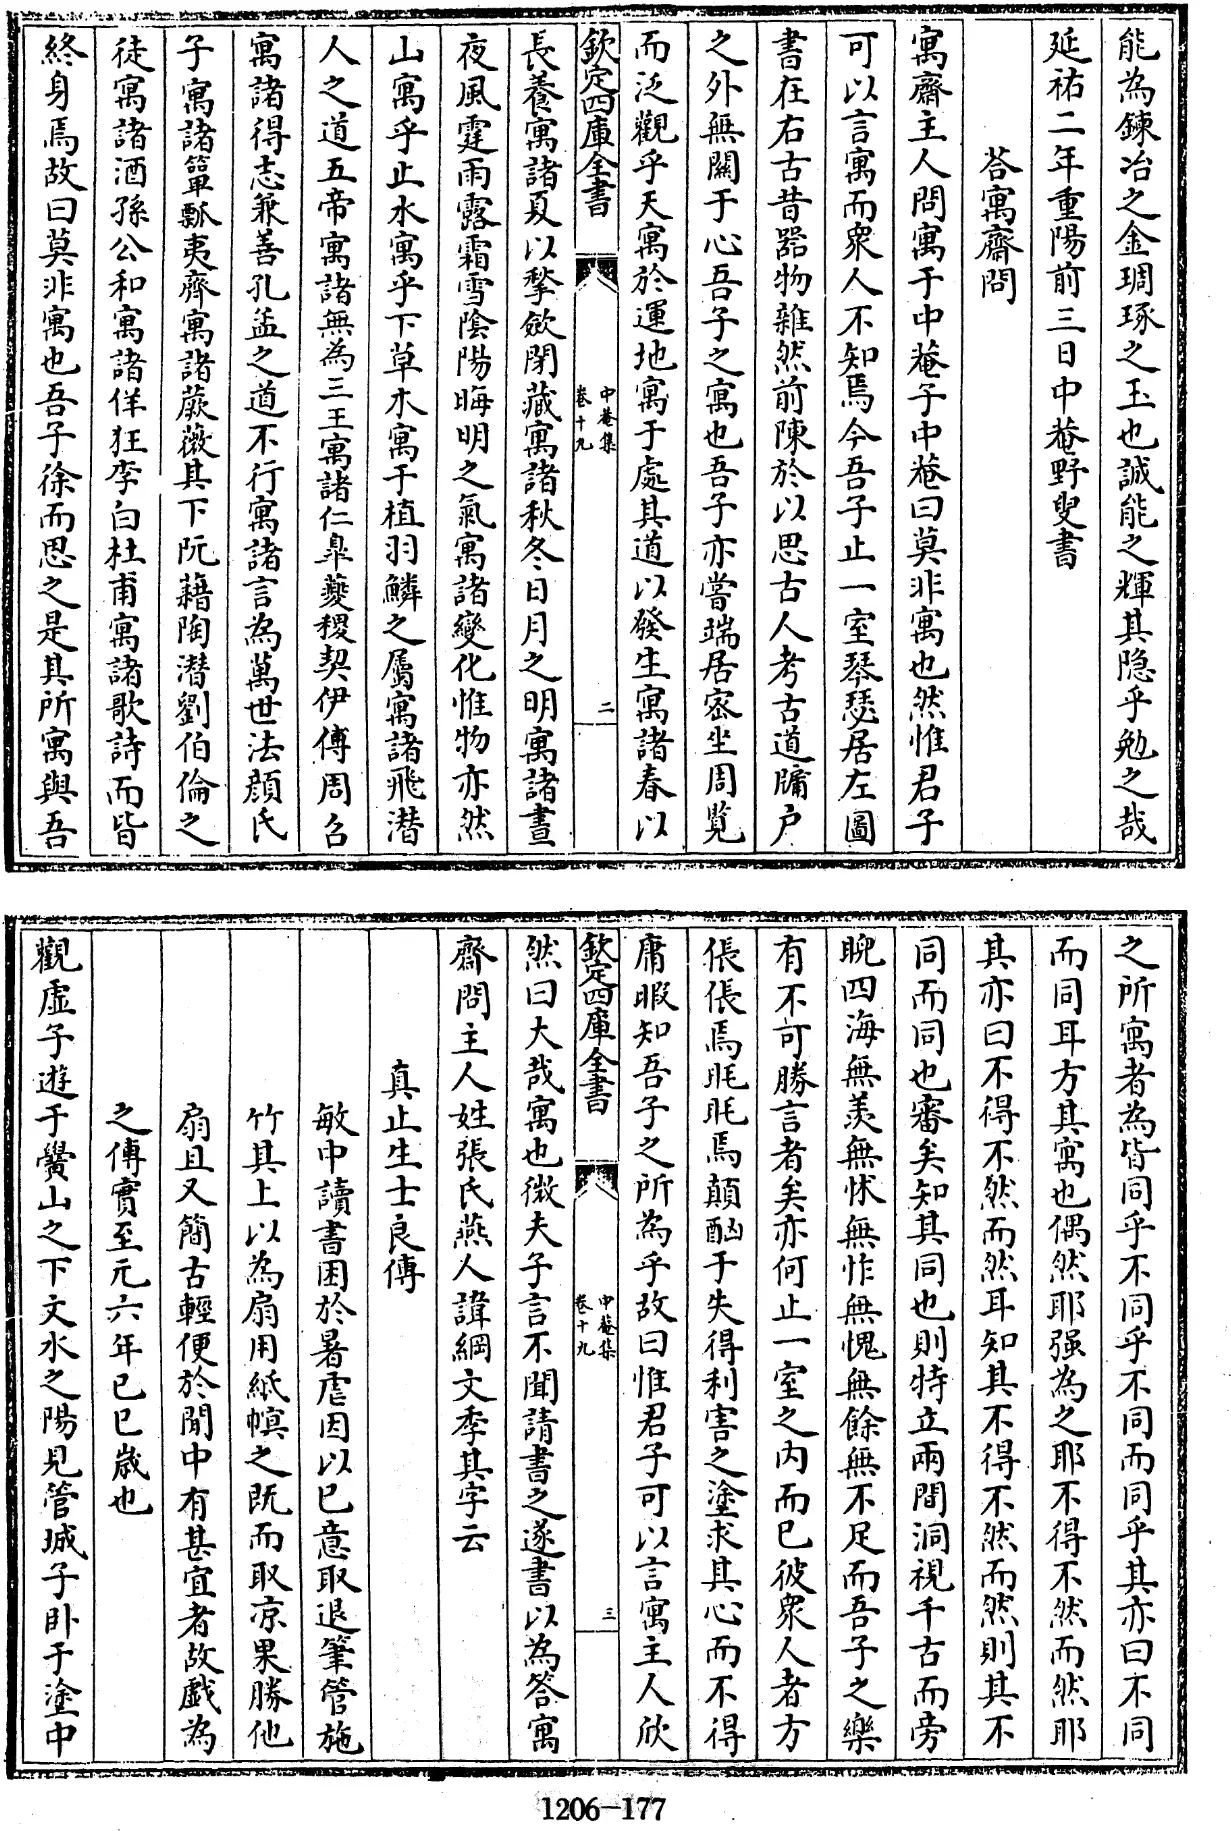 能為鍊冶之金琱琢之玉也誠能之輝其隐乎勉之哉
延祐二年重陽前三日中菴野叟書
荅寓齋問
寓齋主人問寓于中菴子中菴曰莫非寓也然惟君子
可以言寓而衆人不知焉今吾子止一室琴瑟居左圖
書在右古昔器物雜然前陳於以思古人考古道牖户
之外無關于心吾子之寓也吾子亦嘗端居宻坐周覧
而泛觀乎天寓於運地寓于處其道以發生寓諸春以
欽定四庫全書
中菴集
卷十九
二
長養寓諸夏以揫斂閉藏寓諸秋冬日月之明寓諸晝
夜風霆雨露霜雪陰陽晦明之氣寓諸變化惟物亦然
山寓乎止水寓乎下草木寓于植羽鱗之屬寓諸飛潜
人之道五帝寓諸無為三王寓諸仁臯夔稷契伊傅周召
寓諸得志兼善孔孟之道不行寓諸言為萬世法顔氏
子寓諸簞瓢夷齊寓諸蕨薇其下阮藉陶潜劉伯倫之
徒寓諸酒孫公和寓諸佯狂李白杜甫寓諸歌詩而皆
終身焉故曰莫非寓也吾子徐而思之是其所寓與吾
之所寓者為皆同乎不同乎不同而同乎其亦曰不同
而同耳方其寓也偶然耶强為之耶不得不然而然耶
其亦曰不得不然而然耳知其不得不然而然則其不
同而同也審矣知其同也則特立兩間洞視千古而旁
睨四海無羡無怵無怍無愧無餘無不足而吾子之樂
有不可勝言者矣亦何止一室之内而已彼衆人者方
倀倀焉眊眊焉顛酗于失得利害之塗求其心而不得
庸暇知吾子之所為乎故曰惟君子可以言寓主人欣
欽定四庫全書
中菴集
卷十九
三
然曰大哉寓也微夫子言不聞請書之遂書以為答寓
齋問主人姓張氏燕人諱綱文季其字云
真止生士良傳
敏中讀書困於暑虐因以已意取退筆管施
竹其上以為扇用紙幎之既而取凉果勝他
扇且又簡古輕便於閒中有甚宜者故戲為
之傳實至元六年已巳歲也
觀虚子遊于黌山之下文水之陽見管城子卧于塗中
1206-177